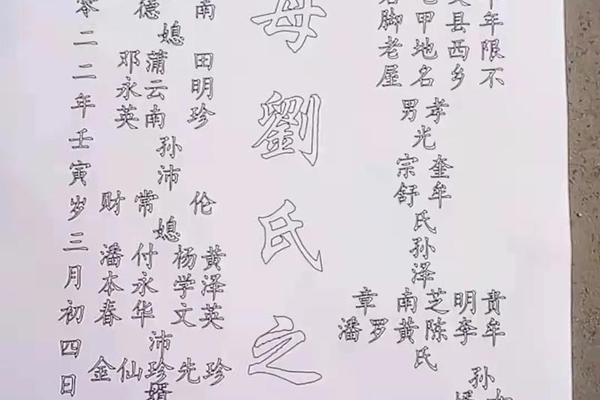 年限不
县西乡
甲地名
脚老屋
孝男光奎宗牟舒氏孙泽
贵明芝南章
牟李陈黄罗潘氏
孙
母劉氏之
南德
媳
田明珍
蒲云南
邓永英
孙沛
伦常财
媳
黄泽英
杨学文
付永华
潘本春
沛
珍先珍仙金
婿
零二二年壬寅岁三月初四日